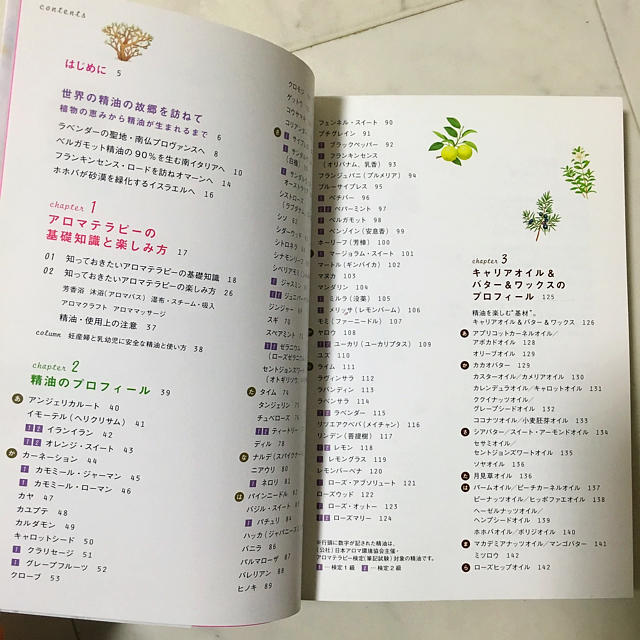 contents
はじめに 5
世界の精油の故郷を訪ねて
植物の恵みから精油が生まれるまで 6
ラベンダーの聖地・南仏プロヴァンスへ 8
ベルガモット精油の90%を生む南イタリアへ 10
フランキンセンス・ロードを訪ねオマーンへ 14
ホホバが砂漠を緑化するイスラエルへ 16
chapter 1
アロマテラピーの
基礎知識と楽しみ方 17
01 知っておきたいアロマテラピーの基礎知識 18
02 知っておきたいアロマテラピーの楽しみ方 26
芳香浴 沐浴(アロマバス) 湿布・スチーム・吸入
アロマクラフト アロママッサージ
精油・使用上の注意 37
column 妊産婦と乳幼児に安全な精油と使い方 38
chapter 2
精油のプロフィール 39
あ アンジェリカルート 40
イモーテル(ヘリクリサム) 41
1 2 イランイラン 42
1 2 オレンジ・スイート 43
か カーネーション 44
1 カモミール・ジャーマン 45
1 カモミール・ローマン 46
カヤ 47
カユプテ 48
カルダモン 49
キャロットシード 50
1 クラリセージ 51
1 2 グレープフルーツ 52
クローブ 53
クロモジ
ゲットウ
コウサイ
コリアンダー
さ
1 サンダル
(白檀)
サンダル
オースト
シストローズ
(ラブダナム
シソ 62
シダーウッド
シトロネラ
シナモンリーフ
シベリアモミ
1 ジャスミン
1 2 ジュニパー
ジンジャー 69
スギ 70
スペアミント
1 2 ゼラニウム
(ローズゼラニウム
セントジョンズワート
(オトギリソウ
た タイム 74
タンジェリン 75
チュベローズ 76
1 2 ティートリー
ディル 78
な ナルデ(スパイクナー
ニアウリ 80
1 ネロリ 81
は パインニードル 82
バジル・スイート
1 パチュリ 84
ハッカ(ジャパニーズミ
バニラ 86
パルマローザ 87
バレリアン 88
ヒノキ 89
フェンネル・スイート 90
プチグレイン 91
1 ブラックペッパー 92
1 フランキンセンス
(オリバナム、乳香) 93
フランジュパニ(プルメリア) 94
ブルーサイプレス 95
1 ベチバー 96
1 2 ペパーミント 97
1 ベルガモット 98
1 ベンゾイン(安息香) 99
ホーリーフ(芳樟) 100
ま 1 マージョラム・スイート 101
マートル(ギンバイカ) 102
マヌカ 103
マンダリン 104
1 ミルラ(没薬) 105
1 メリッサ(レモンバーム) 106
モミ(ファーニードル) 107
や ヤロウ 108
1 2 ユーカリ(ユーカリプタス) 109
ユズ 110
ら ライム 111
ラヴィンサラ 112
ラバンディン 113
ラベンサラ 114
1 2 ラベンダー 115
リツエアクベバ(メイチャン) 116
リンデン(菩提樹) 117
1 2 レモン 118
1 レモングラス 119
レモンバーベナ 120
1 ローズ・アブソリュート 121
ローズウッド 122
1 ローズ・オットー 123
1 2 ローズマリー 124
※行頭に数字が記された精油は、
(公社)日本アロマ環境協会主催・
アロマテラピー検定(筆記試験)対象の精油です。
1…検定1級 2…検定2級
chapter 3
キャリアオイル&
バター&ワックスの
プロフィール 125
精油を楽しむ“基材”。
キャリアオイル&バター&ワックス 126
あ アプリコットカーネルオイル/
アボカドオイル 128
オリーブオイル 129
か カカオバター 130
カスターオイル/カメリアオイル 130
カレンデュラオイル/キャロットオイル 131
ククイナッツオイル/
グレープシードオイル 132
ココナツオイル/小麦胚芽オイル 133
さ シアバター/スイート・アーモンドオイル 134
セサミオイル/
セントジョンズワートオイル 135
ソヤオイル 136
た 月見草オイル 136
は パームオイル/ピーチカーネルオイル 137
ピーナッツオイル/ヒッポファエオイル 138
ヘーゼルナッツオイル/
ヘンプシードオイル 139
ホホバオイル/ボリジオイル 140
ま マカデミアナッツオイル/マンゴバター 141
ミツロウ 142
ら ローズヒップオイル 142